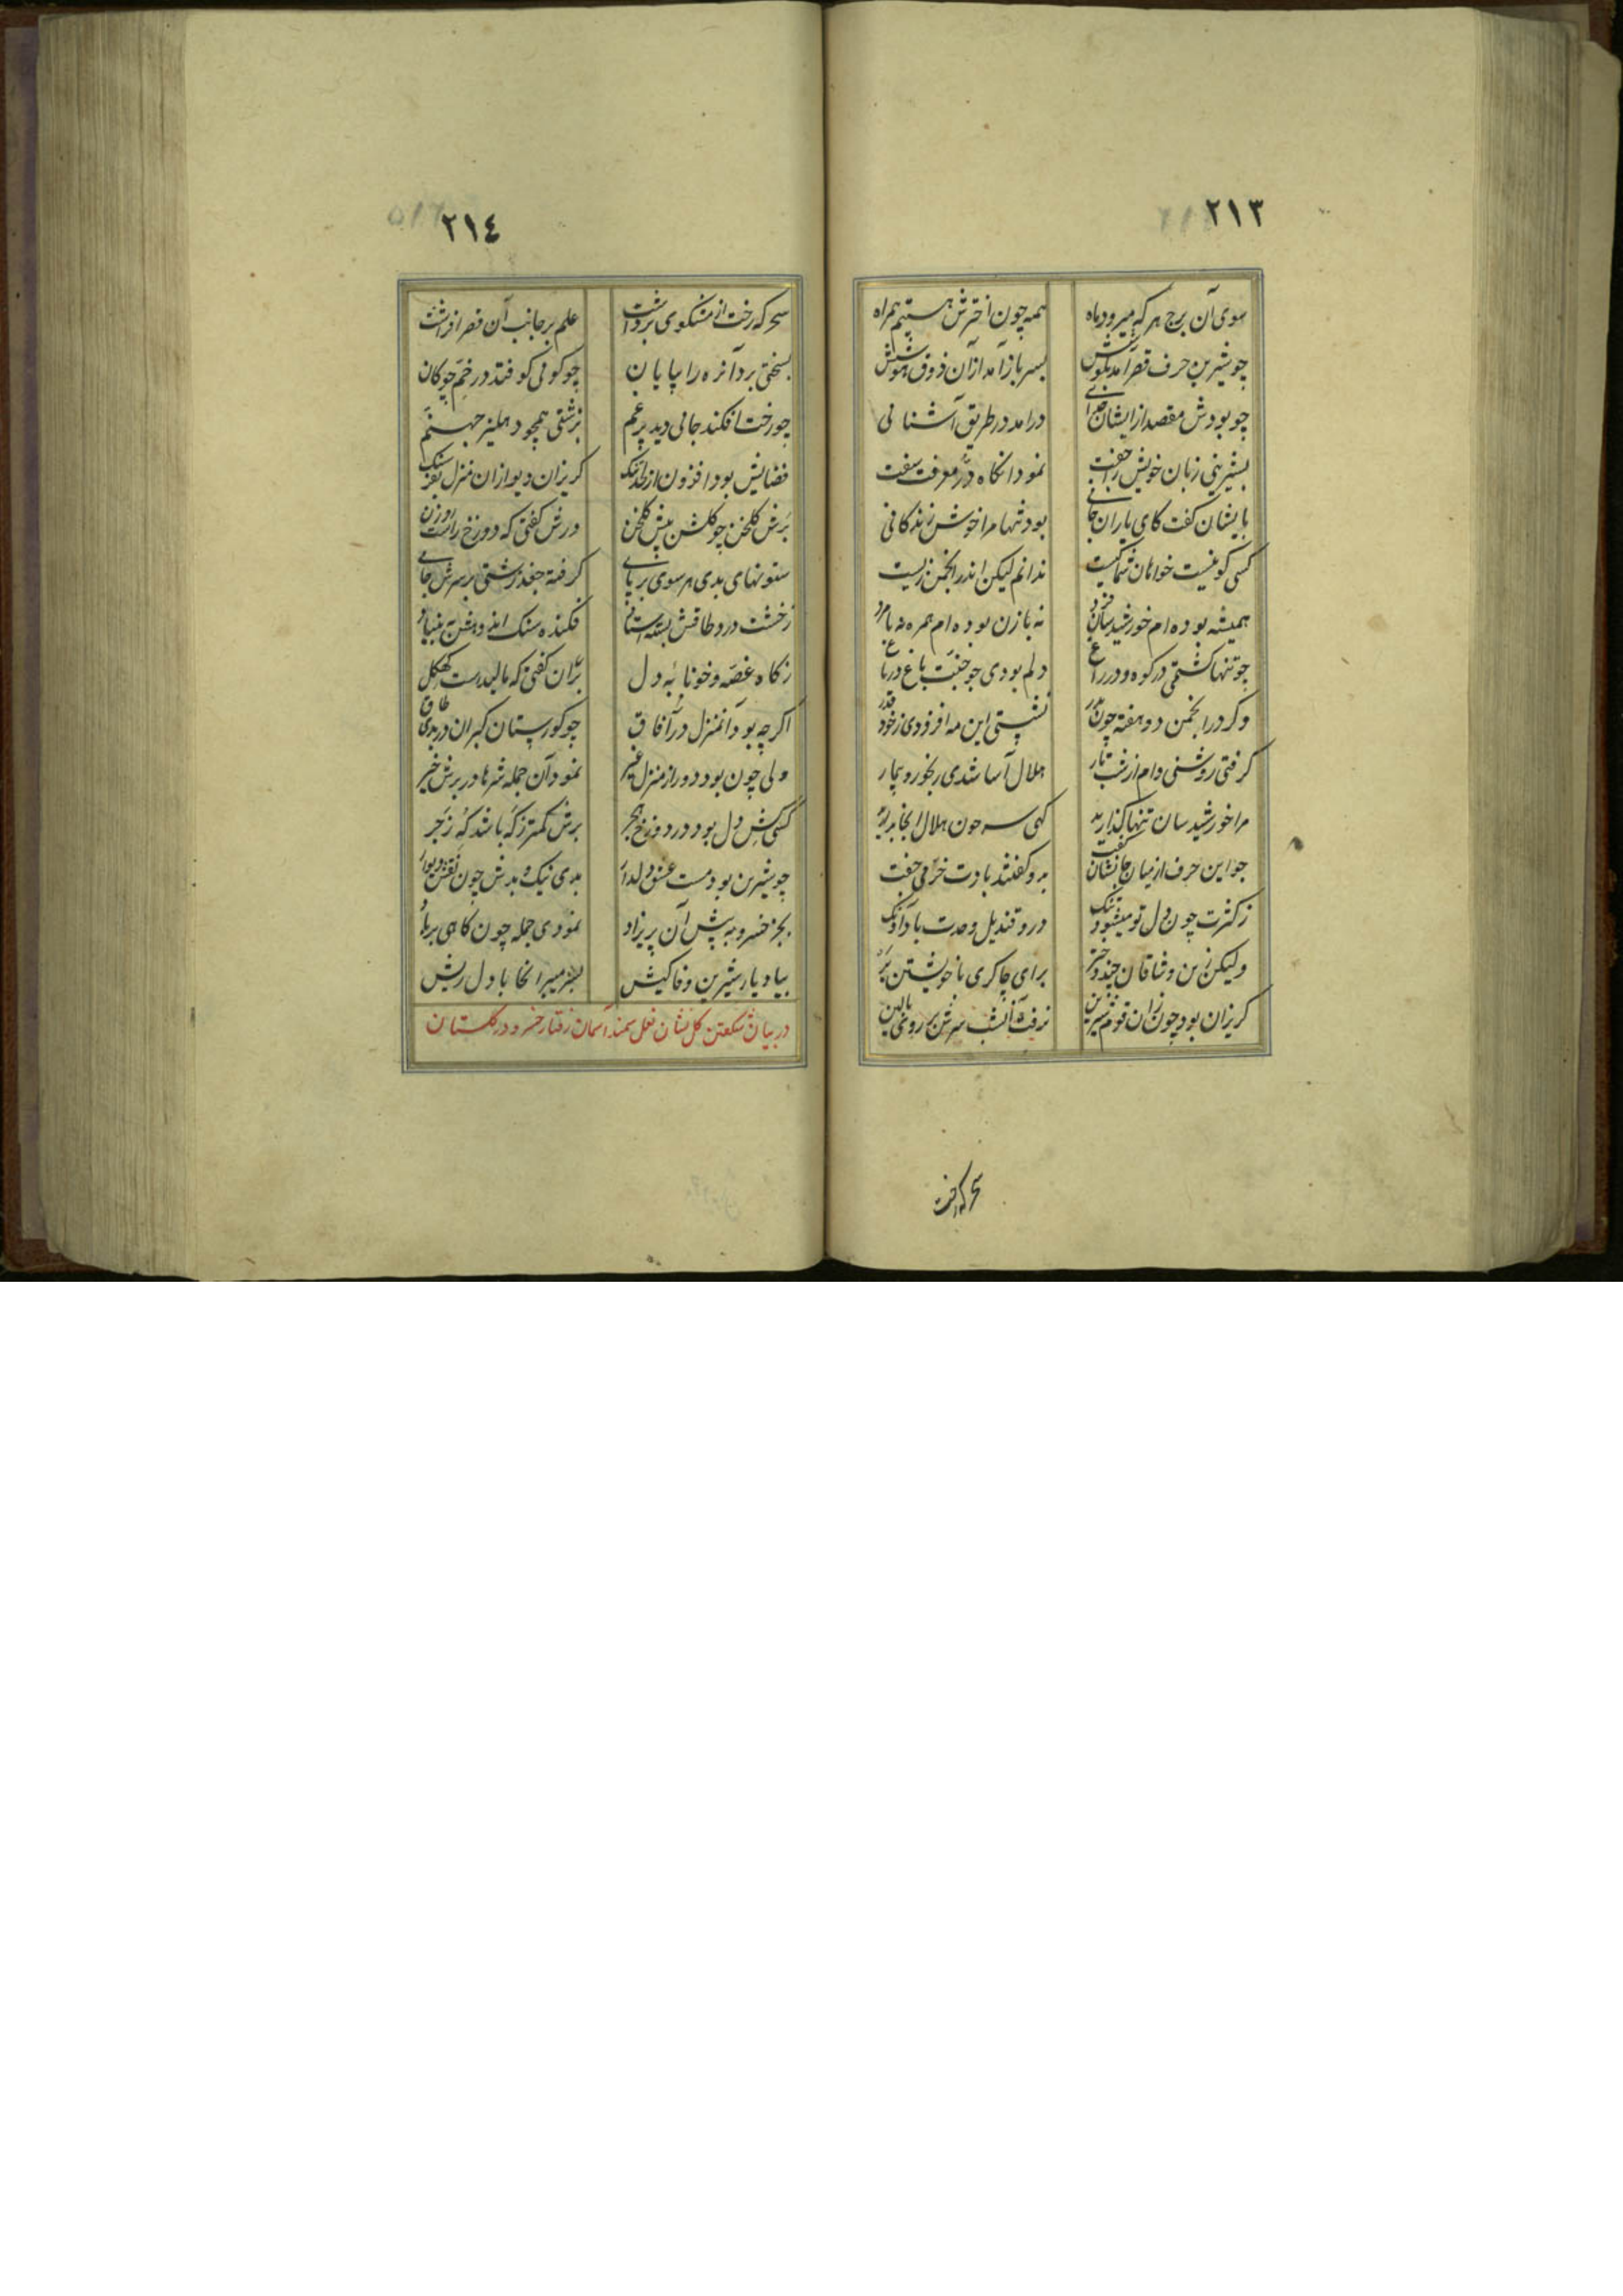 ٢١٣
سوی آن برج هر که میرود ماه همه چون اخترش هستیم همراه
چو شیرین حرف قصر آمد بگوشش بسر باز آمد از آن ذوق هوشش
چو بودش مقصد از ایشان جدائی درامد در طریق آشنائی
بشیرینی زبان خویش را جفت نمود انکاه در معرفت سفت
بایشان کفت کای یاران جانی بود تنها مرا خوش زندکانی
کسی کو نیست خواهان شما کیست ندانم لیکن اندر انجمن زیست
همیشه بوده ام خورشید سان فرد نه با زن بوده ام همره نه با مرد
چو تنها کشتمی در کوه و در راغ دلم بودی چو جنت باغ در باغ
و کر در انجمن دو هفته چون بدر نشستی این مه افزودی ز خود قدر
کرفتی روشنی دام از شب تار هلال آسا شدی رنجور و بیمار
مرا خورشید سان تنها کذارید کهی چون هلال انجا
چو این حرف از میان جانشان کفت بدو کفتند بادت خرمی جفت
ز کثرت چون دل تو میشود تنک درو قندیل وحدت باد آونک
ولیکن زین وشاقان چند دختر برای چاکری با خویشتن بر
کریزان بود چون زان قوم شیرین نرفت آنشب سرش بر روی بالین
سحر که رخت
٢١٤
سحر که رخت از مشکوی برداشت علم بر جانب آن قصر افراشت
بسختی برد آنره را بپایان چو کوئی کو فتد در خم چوکان
چو رخت افکند جائی دید پر غم بزشتی همچو دهلیز جهنم
فضایش بود افزون از لحد تنک کریزان دیو از ان منزل بفرسنک
برش کلخن چو کلشن پیش کلخن درش کفتی که دوزخ راست روزن
ستونهای بدی هر سوی بر پای کرفته جغد زشتی بر سرش جای
ز خشت درد طاقش بسته استاد فکنده سنک اندوهش به بنیاد
ز کاه غصه و خونابه دل بران کفتی که مالیدست کهکل
اکر چه بود آنمنزل در آفاق چو کورستان کبران در بدی طاق
ولی چون بود دور از منزل غیر نمود آن جمله شرها در برش خیر
کسی کش دل بود در دوزخ هجر برش کمتر ز که باشد که زجر
چو شیرین بود مست عشق دلدار بدی نیک و بدش چون نقش دیوار
بجز خسرو به پیش آن پریزاد نمودی جمله چون کاهی بر باد
بیاد یار شیرین وفاکیش بسر میبرد انجا با دل ریش
در بیان شکفتن کل نشان نعل سمند آسمان رفتار خسرو در کلستان